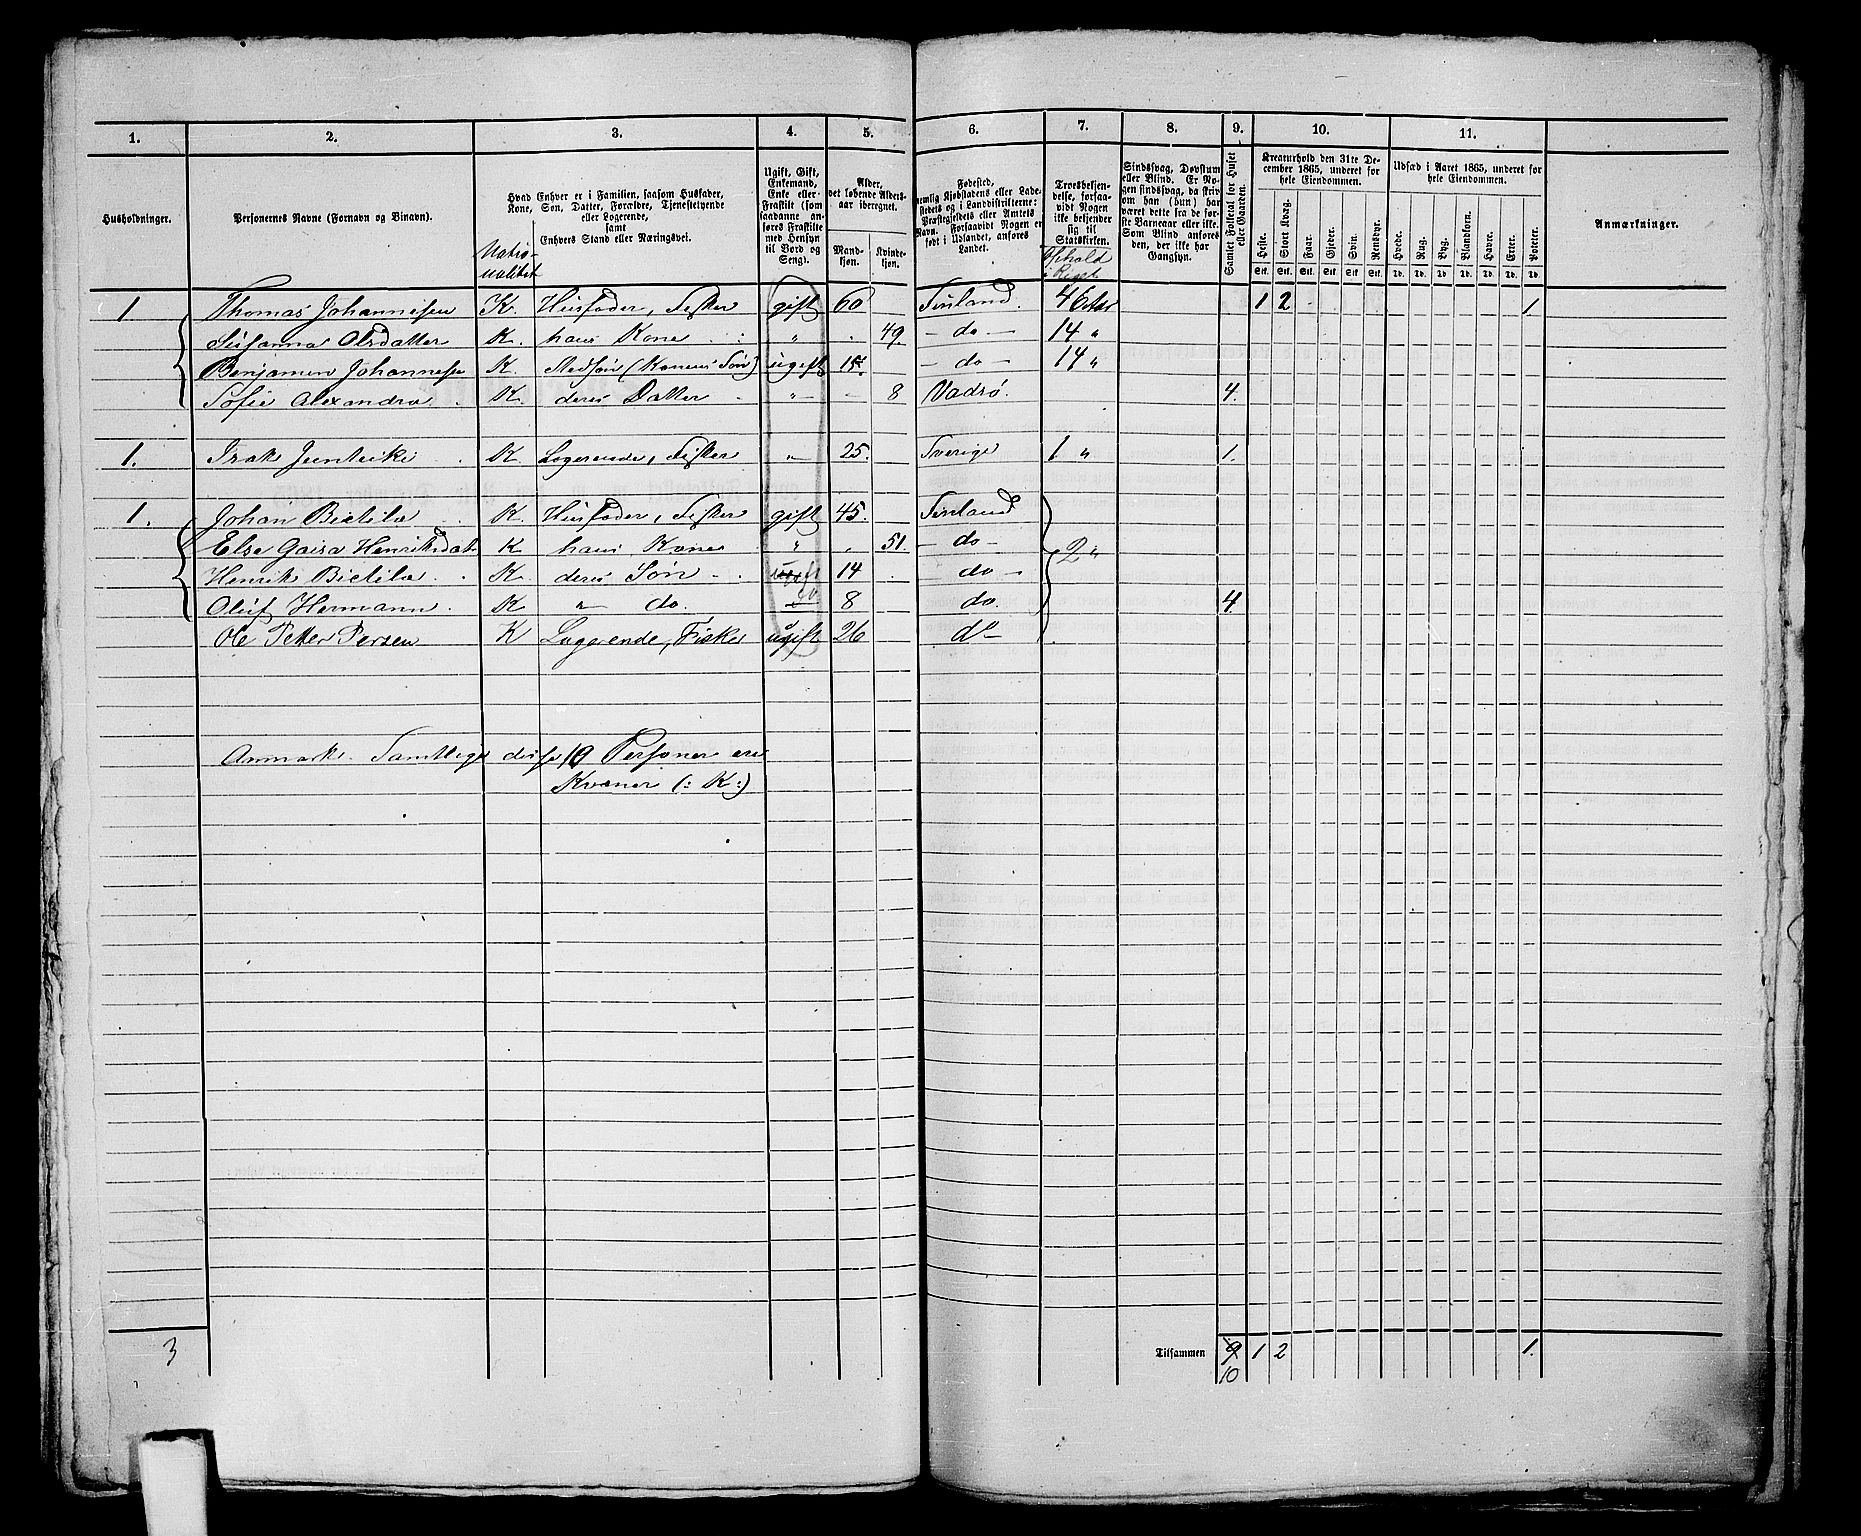 1. 2. 3. 4. 5. 6. 7. 8. 9. 10. 11.
Husholdninger.
Personernes Navne (Fornavn og Binavn).
Hvad Enhver er i Familien, saasom Husfader, Kone, Søn, Datter, Forældre, Tjenestetyende eller Logerende, samt Enhvers Stand eller Næringsvei.
Natio-
nalitet
Ugift, Gift, Enkemand, Enke eller Fraskilt (som saadanne anføres Fraskilte med Hensyn til Bord og Seng).
Alder, det løbende Alders-aar iberegnet.
Mand-kjøn. Kvinde-kjøn.
Fødested, nemlig Kjøbstadens eller Ladestedets og i Landdistrikterne: Præstegjeldets eller Amtets Navn. Forsaavidt Nogen er født i Udlandet, anføres Landet.
Troesbekjendelse, forsaavidt Nogen ikke bekjender sig til Statskirken.
Ophold
i Riget
Sindssvag, Døvstum eller Blind. Er Nogen sindssvag, da skriv om han (hun) har været dette fra de første Barneaar eller ikke. Som Blind anføres den, der ikke har Gangsyn.
Samlet Folketal for Huset eller Gaarden.
Kreaturhold den 31te December 1865, underet for hele Eiendommen.
Heste. Stort Kvæg. Faar. Gjeder. Svin. Rensdyr.
Stk. Stk. Stk. Stk. Stk. Stk.
Udsæd i Aaret 1865, underet for hele Eiendommen.
Hvede. Rug. Byg. Blandkorn. Havre. Erter. Poteter.
Td. Td. Td. Td. Td. Td. Td.
Anmærkninger.
1 Thomas Johannesen K. Husfader, Fisker gift 60 Finland. 4 Aar 1 2 1
Susanna Olsdatter K. hans Kone " 49. — do — 14 "
Benjamin Johannesen K. Stedsøn (Konens Søn) ugift 15. — do — 14 "
Sofie Alexandra K. deres Datter " 8 Vadsø. 4.
1. Isak K. Logerende, Fisker " 25. Sverige 1 " 1.
1. Johan Bietilæ K. Husfader, Fisker gift 45. Finland
Else Gaisa Henriksdat K hans Kone " 51. — do — 2 "
Henrik Bietilæ K. deres Søn ugift 14 do —
Oluf Hermann. K " do. do 8 do. 4.
Ole Petter Persen K Logerende, Fisker ugift 26 do
Anmærk. Samtlige disse 10 Personer ere
Kvæner (: K :)
3 Tilsammen 9 1 2 1.
10